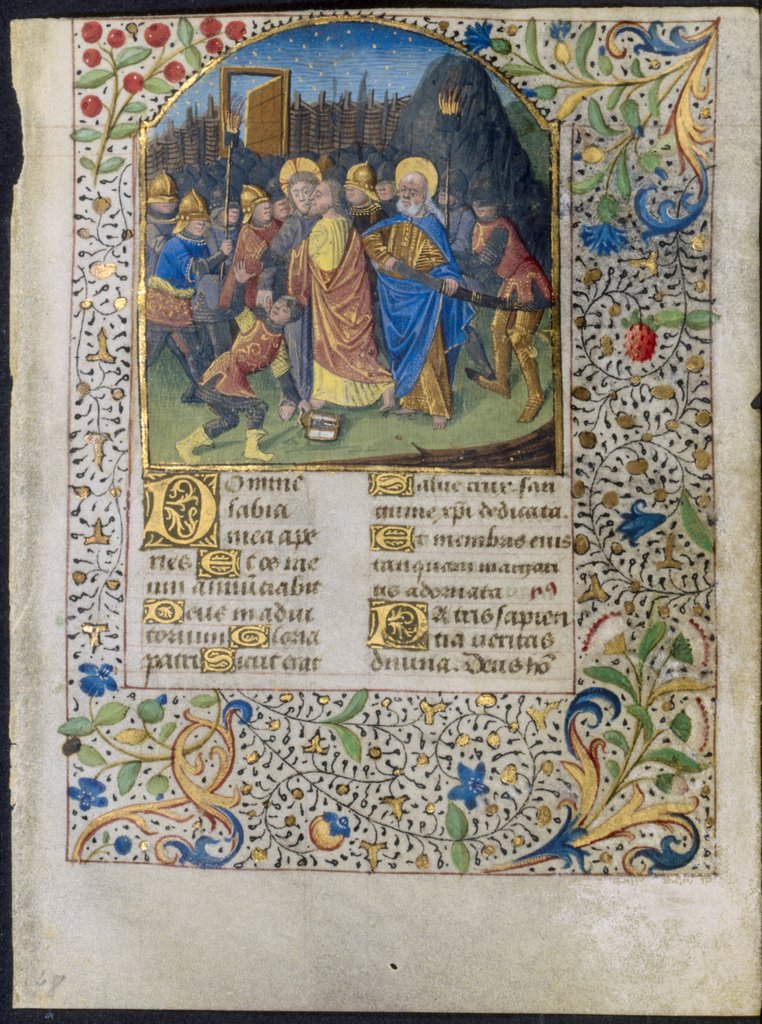 Domine
labia
mea ape
ries Et os me
um annũciabit
Deus in adiu
torium Gloria
patri Sicut erat
Salve crux san
guine xp̃i dedicata.
Et membris eius
tanquam margari
tis adornata
Patris sapien
tia veritas
divina. Deus hõ